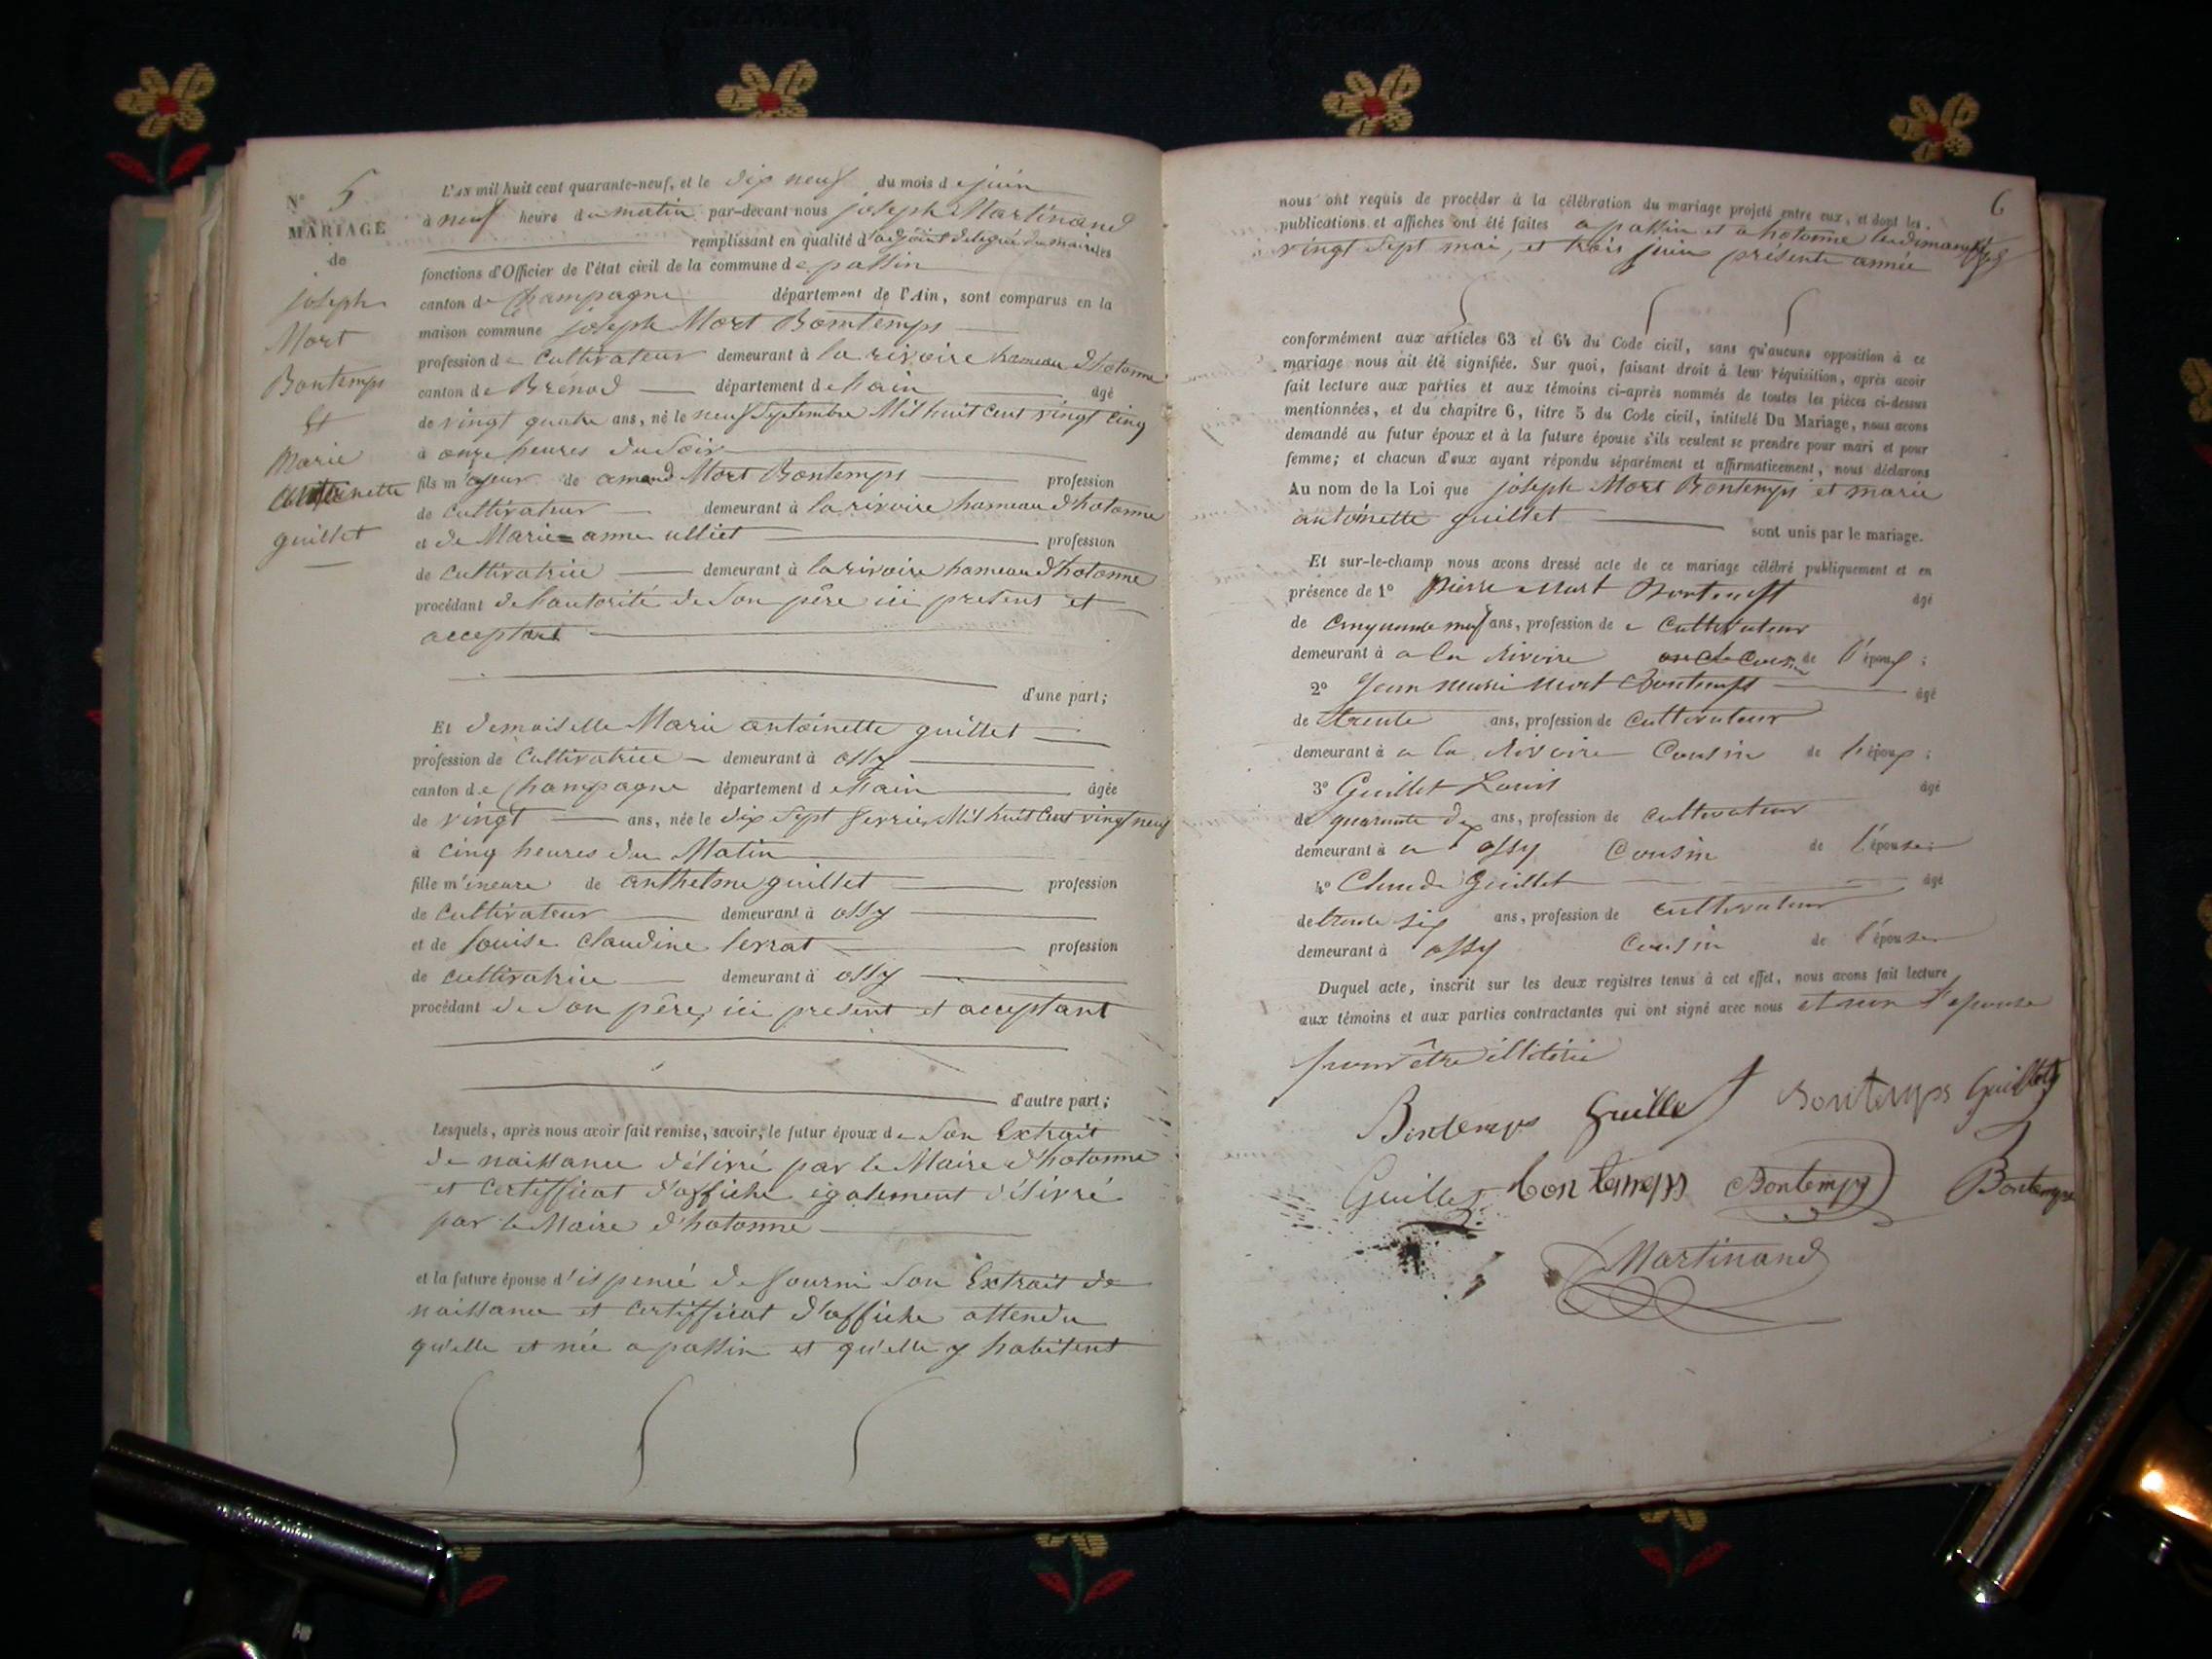 N° 5
MARIAGE
de
joseph
Mort
Bontemps
Et
Marie
antoinette
guillet
L'AN mil huit cent quarante-neuf, et le dix neuf du mois de juin
à neuf heure du matin par-devant nous joseph Martinand
remplissant en qualité d'adjoint délégué du maire les
fonctions d'Officier de l'état civil de la commune de passin
canton de Champagne département de l'Ain, sont comparus en la
maison commune joseph Mort Bontemps
profession de Cultivateur demeurant à la rivoire hameau d'hotonne
canton de Brénod département de l'ain âgé
de vingt quatre ans, né le neuf Septembre Mil huit Cent vingt Cinq
à onze heures du Soir
fils majeur de amand Mort Bontemps profession
de Cultivateur demeurant à la rivoire hameau d'hotonne
et de Marie-anne ulliet profession
de Cultivatrice demeurant à la rivoire hameau d'hotonne
procédant de l'autorité de Son père ici présent et
acceptant
d'une part;
Et demoiselle Marie antoinette guillet
profession de Cultivatrice demeurant à ossy
canton de Champagne département de l'ain âgée
de vingt ans, née le dix Sept fevrier Mil huit Cent vingt neuf
à Cinq heures du Matin
fille mineure de anthelme guillet profession
de Cultivateur demeurant à ossy
et de louise Claudine levrat profession
de Cultivatrice demeurant à ossy
procédant de Son père, ici présent et acceptant
d'autre part;
Lesquels, après nous avoir fait remise, savoir, le futur époux de Son Extrait
de naissance délivré par le Maire d'hotonne
et Certifficat d'affiche également délivré
par le Maire d'hotonne
et la future épouse d'ispencé de fourni Son Extrait de
naissance et Certifficat d'affiche attendu
qu'elle et née a passin et qu'elle y habitent
6
nous ont requis de procéder à la célébration du mariage projeté entre eux, et dont les
publications et affiches ont été faites a passin et a hotonne les dimanches
vingt Sept mai, et trois juin présente année
conformément aux articles 63 et 64 du Code civil, sans qu'aucune opposition à ce
mariage nous ait été signifiée. Sur quoi, faisant droit à leur réquisition, après avoir
fait lecture aux parties et aux témoins ci-après nommés de toutes les pièces ci-dessus
mentionnées, et du chapitre 6, titre 5 du Code civil, intitulé Du Mariage, nous avons
demandé au futur époux et à la future épouse s'ils veulent se prendre pour mari et pour
femme; et chacun d'eux ayant répondu séparément et affirmativement, nous déclarons
Au nom de la Loi que joseph Mort Bontemps et marie
antoinette guillet sont unis par le mariage.
Et sur-le-champ nous avons dressé acte de ce mariage célébré publiquement et en
présence de 1° Pierre Mort Bontemps âgé
de Cinquante neuf ans, profession de Cultivateur
demeurant à a la Rivoire cousin de l'époux;
2° Jean Marie Mort Bontemps âgé
de trente ans, profession de Cultivateur
demeurant à a la Rivoire Cousin de l'époux;
3° Guillet Louis âgé
de quarante dex ans, profession de Cultivateur
demeurant à a ossy Cousin de l'épouse;
4° Claude Guillet âgé
de trente six ans, profession de cultivateur
demeurant à ossy Cousin de l'épouse
Duquel acte, inscrit sur les deux registres tenus à cet effet, nous avons fait lecture
aux témoins et aux parties contractantes qui ont signé avec nous et non l'épouse
pour être illitérée
Bontemps Guillet Bontemps Guillet
Guillet bontemps Bontemps Bontemps
Martinand